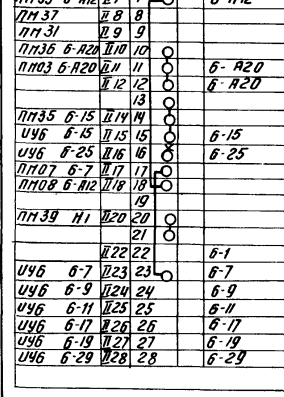 ПМ35 6-А12 II7 7 6-А12
ПМ37 II8 8
ПМ31 II9 9
ПМ36 6-А20 II10 10
ПМ03 6-А20 II11 11 6-А20
II12 12 6-А20
13
ПМ35 6-15 II14 14
УУ6 6-15 II15 15 6-15
УУ6 6-25 II16 16 6-25
ПМ07 6-7 II17 17
ПМ08 6-А12 II18 18
19
ПМ39 М1 II20 20
21
II22 22 6-1
УУ6 6-7 II23 23 6-7
УУ6 6-9 II24 24 6-9
УУ6 6-11 II25 25 6-11
УУ6 6-17 II26 26 6-17
УУ6 6-19 II27 27 6-19
УУ6 6-29 II28 28 6-29